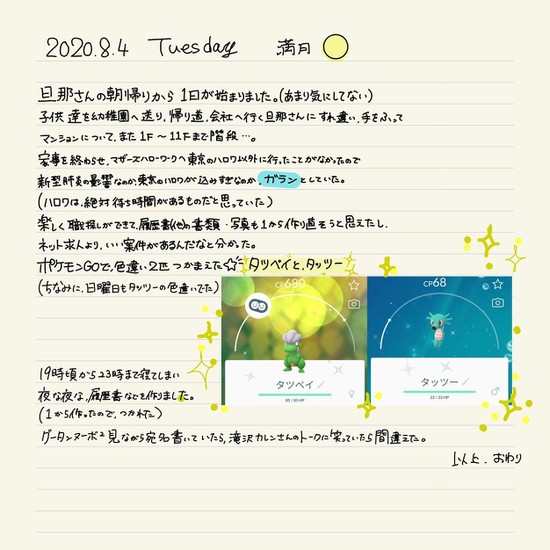 2020.8.4 Tuesday 満月
旦那さんの朝帰りから1日が始まりました。(あまり気にしてない)
子供達を幼稚園へ送り、帰り道、会社へ行く旦那さんにすれ違い、手をふって
マンションについて、また1F〜11Fまで階段…。
家事を終わらせ、マザーズハローワークへ東京のハロワ以外に行ったことがなかったので
新型肺炎の影響なのか、東京のハロワが込みすぎなのか、ガランとしていた。
(ハロワは、絶対待ち時間があるものだと思っていた)
楽しく職探しができて、履歴書(他)の書類・写真も1から作り直そうと思えたし、
ネット求人より、いい案件があるんだなと分かった。
ポケモンGOで、色違い2匹つかまえた☆ タツベイと、タッツー
(ちなみに、日曜日もタッツーの色違いでた)
CP680
タツベイ
CP68
タッツー
19時頃から23時まで寝てしまい
夜な夜な、履歴書などを作りました。
(1から作ったので、つかれた)
グータンヌーボ2見ながら宛名書いていたら、滝沢カレンさんのトークに笑っていたら間違えた。
以上、おわり